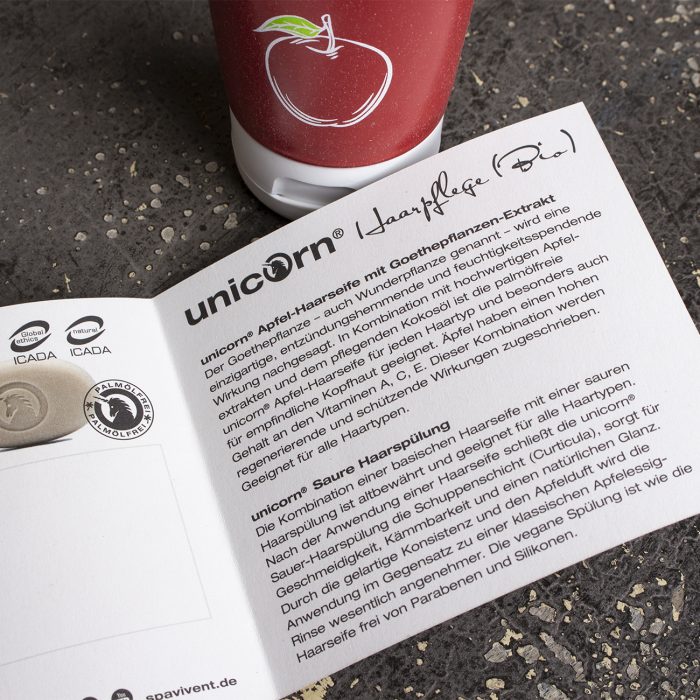 Global ethics
ICADA
natural
ICADA
PALMÖLFREI
PALMÖLFREI
spavivent.de
unicorn® Haarpflege (Bio)
unicorn® Apfel-Haarseife mit Goethepflanzen-Extrakt
Der Goethepflanze – auch Wunderpflanze genannt – wird eine
einzigartige, entzündungshemmende und feuchtigkeitsspendende
Wirkung nachgesagt. In Kombination mit hochwertigen Apfel-
extrakten und dem pflegenden Kokosöl ist die palmölfreie
unicorn® Apfel-Haarseife für jeden Haartyp und besonders auch
für empfindliche Kopfhaut geeignet. Äpfel haben einen hohen
Gehalt an den Vitaminen A, C, E. Dieser Kombination werden
regenerierende und schützende Wirkungen zugeschrieben.
Geeignet für alle Haartypen.
unicorn® Saure Haarspülung
Die Kombination einer basischen Haarseife mit einer sauren
Haarspülung ist altbewährt und geeignet für alle Haartypen.
Nach der Anwendung einer Haarseife schließt die unicorn®
Sauer-Haarspülung die Schuppenschicht (Curticula), sorgt für
Geschmeidigkeit, Kämmbarkeit und einen natürlichen Glanz.
Durch die gelartige Konsistenz und den Apfelduft wird die
Anwendung im Gegensatz zu einer klassischen Apfelessig-
Rinse wesentlich angenehmer. Die vegane Spülung ist wie die
Haarseife frei von Parabenen und Silikonen.